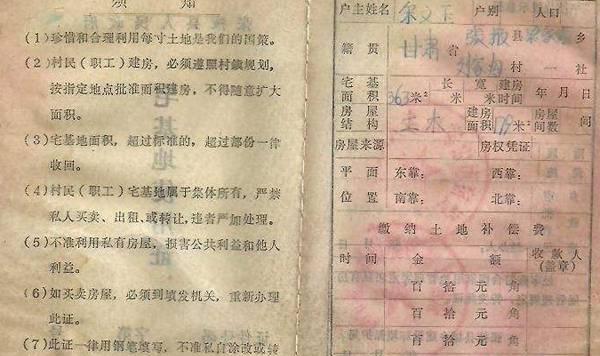 须 知
(1)珍惜和合理利用每寸土地是我们的国策。
(2)村民(职工)建房,必须遵照村镇规划,
按指定地点批准面积建房,不得随意扩大
面积。
(3)宅基地面积,超过标准的,超过部份一律
收回。
(4)村民(职工)宅基地属于集体所有,严禁
私人买卖、出租、或转让,违者严加处理。
(5)不准利用私有房屋,损害公共利益和他人
利益。
(6)如买卖房屋,必须到填发机关,重新办理
此证。
(7)此证一律用钢笔填写,不准私自涂改或转
户主姓名 户别 人口
籍贯 甘肃 省 县 乡
村 一 社
宅基面积 363 米² 长 米 宽 米 建房时间 年 月 日
房屋结构 土木 建房面积 米² 房屋间数 间
房屋来源 房权凭证
平面位置 东靠: 西靠:
南靠: 北靠:
缴纳土地补偿费
时间 金额 收款人(盖章)
百 拾 元 角
百 拾 元 角
百 拾 元 角
百 拾 元 角